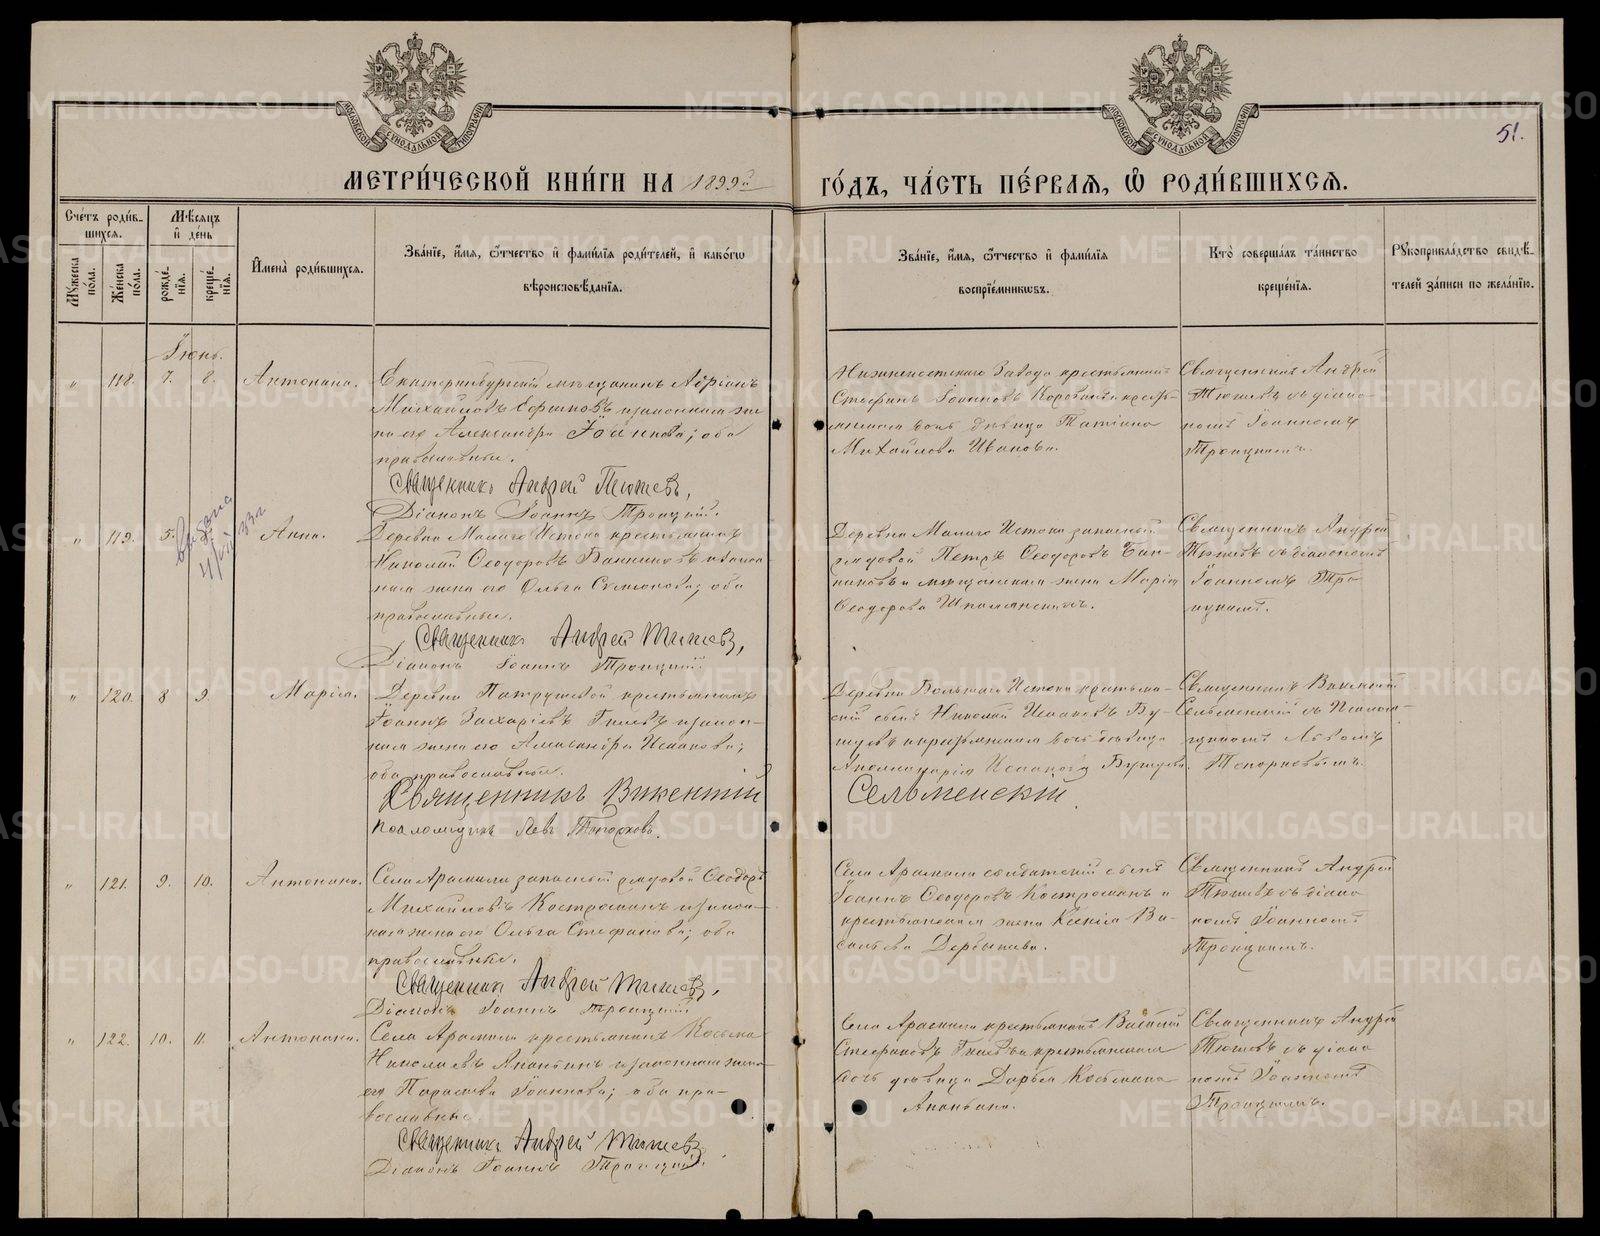 МОСКОВСКОЙ СѴНОДАЛЬНОЙ ТИПОГРАФІИ
МОСКОВСКОЙ СѴНОДАЛЬНОЙ ТИПОГРАФІИ
51.
МЕТРИ́ЧЕСКОЙ КНИ́ГИ НА 1899й
ГО́ДЪ, ЧА́СТЬ ПЕ́РВАѦ, Ѡ҆ РОДИ́ВШИХСѦ.
Сче́тъ роди́в-
шихсѧ.
Мꙋ́жеска по́ла.
Же́нска по́ла.
Мѣ́сѧцъ
и҆ де́нь
рожде́-
нїѧ.
креще́-
нїѧ.
И҆мена̀ роди́вшихсѧ.
Зва́нїе, и҆́мѧ, ѻ҆́тчество и҆ фами́лїѧ роди́телей, и҆ како́гѡ
вѣроисповѣ́данїѧ.
Зва́нїе, и҆́мѧ, ѻ҆́тчество и҆ фами́лїѧ
воспрїе́мникѡвъ.
Кто̀ соверша́лъ та́инство
креще́нїѧ.
Рꙋкоприкла́дство свидѣ́-
телей за́писи по жела́нїю.
Іюнь.
" 118. 7. 8. Антонина.
Екатеринбургскій мѣщанинъ Адріанъ
Михайловъ и законная же
на его Александра Іоаннова; оба
православные.
Священникъ Андрей Тюшевъ,
Діаконъ Іоаннъ Троицкій.
Нижнеисетскаго Завода
Стефанъ Іоанновъ
дѣвица Татіана
Михайлова Иванова.
Священникъ Андрей
Тюшевъ съ діако-
номъ Іоанномъ
Троицкимъ.
" 119. 5. Анна.
Деревни Малаго Истока крестьянинъ
Николай Ѳеодоровъ Банниковъ и закон-
ная жена его Ольга Симеонова; оба
православные.
Священникъ Андрей Тюшевъ,
Діаконъ Іоаннъ Троицкій.
Деревни Малаго Истока запасный
рядовой Петръ Ѳеодоровъ Бан-
никовъ и мѣщанская жена Марія
Ѳеодорова
Священникъ Андрей
Тюшевъ съ діакономъ
Іоанномъ Тро-
ицкимъ.
" 120. 8 9. Марія.
Деревни Патрушевой крестьянинъ
Іоаннъ Захаріевъ Гилевъ и закон-
ная жена его Александра Исаакова;
оба православные.
Священникъ Викентій
Сельменскій
Псаломщикъ Левъ Топорковъ.
Деревни Большаго Истока крестьян-
скій сынъ Николай Исааковъ Бу-
шуевъ и крестьянская дочь дѣвица
Аполлинарія Исаакова Бушуева.
Священникъ Викентій
Сельменскій съ Псалом-
щикомъ Львомъ
Топорковымъ.
" 121. 9. 10. Антонина.
Села Арамили запасный рядовой Ѳеодоръ
Михайловъ Костроминъ и закон-
ная жена его Ольга Стефанова; оба
православные.
Священникъ Андрей Тюшевъ,
Діаконъ Іоаннъ Троицкій
Села Арамили солдатскій сынъ
Іоаннъ Ѳеодоровъ Костроминъ и
крестьянская жена Ксенія Ва-
сильева Дербышева.
Священникъ Андрей
Тюшевъ съ діако
номъ Іоанномъ
Троицкимъ.
" 122. 10. 11. Антонина.
Села Арамили крестьянинъ Косьма
Николаевъ Ананьинъ и законная жена
его Параскева Іоаннова; оба пра-
вославные
Священникъ Андрей Тюшевъ
Діаконъ Іоаннъ Троицкій.
Села Арамили крестьянинъ Василій
Стефановъ Гилевъ и крестьянская
дочь дѣвица Дарья Косьмина
Ананьина.
Священникъ Андрей
Тюшевъ съ діако
номъ Іоанномъ
Троицкимъ.
METRIKI.GASO-URAL.RU